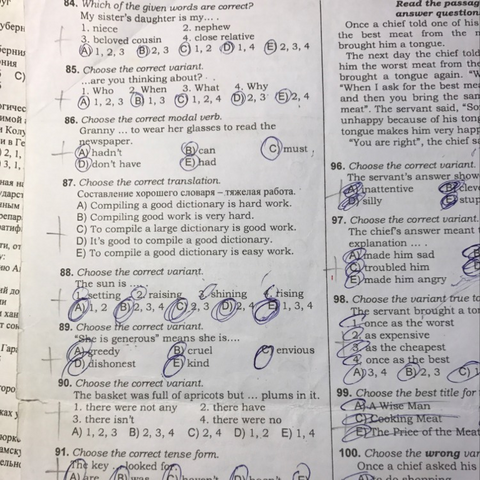 84. Which of the given words are correct?
My sister's daughter is my... .
1. niece 2. nephew
3. beloved cousin 4. close relative
A) 1, 2, 3 B) 2, 3 C) 1, 2 D) 1, 4 E) 2, 3, 4
85. Choose the correct variant.
...are you thinking about?
1. Who 2. When 3. What 4. Why
A) 1, 2, 3 B) 1, 3 C) 1, 2, 4 D) 2, 3 E) 2, 4
86. Choose the correct modal verb.
Granny ... to wear her glasses to read the
newspaper.
A) hadn't B) can C) must
D) don't have E) had
87. Choose the correct translation.
Составление хорошего словаря – тяжелая работа.
A) Compiling a good dictionary is hard work.
B) Compiling good work is very hard.
C) To compile a large dictionary is good work.
D) It's good to compile a good dictionary.
E) To compile a good dictionary is easy work.
88. Choose the correct variant.
The sun is ... .
1. setting 2. raising 3. shining 4. rising
A) 1, 2 B) 2, 3, 4 C) 2, 3 D) 2, 4 E) 1, 3, 4
89. Choose the correct variant.
"She is generous" means she is....
A) greedy B) cruel C) envious
D) dishonest E) kind
90. Choose the correct variant.
The basket was full of apricots but ... plums in it.
1. there were not any 2. there have
3. there isn't 4. there were no
A) 1, 2, 3 B) 2, 3, 4 C) 2, 4 D) 1, 2 E) 1, 4
91. Choose the correct tense form.
The key ... looked for.
A) are B) was C) haven't D) hasn't E)
Read the passag
answer question
Once a chief told one of his
the best meat from the n
brought him a tongue.
The next day the chief told
him the worst meat from the
brought a tongue again. "W
"When I ask for the best mea
and then you bring the san
meat". The servant said, "So
unhappy because of his tong
tongue makes him very happ
"You are right", the chief sa
96. Choose the correct variant.
The servant's answer show
A) inattentive B) cleve
D) silly E) stup
97. Choose the correct variant.
The chief's answer meant t
explanation ... .
A) made him sad
C) troubled him
E) made him angry
98. Choose the variant true to
The servant brought a ton
1. once as the worst
2. as expensive
3. as the cheapest
4. once as the best
A) 3, 4 B) 2, 3 C) 1
99. Choose the best title for
A) A Wise Man
C) Cooking Meat
E) The Price of the Meat
100. Choose the wrong var
Once a chief asked his
A) to do shopping